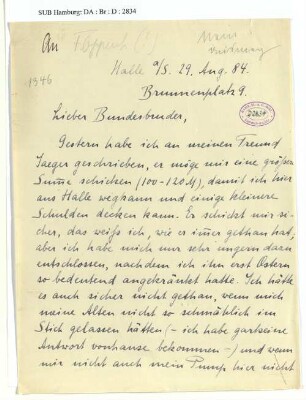 SUB Hamburg: DA : Br : D : 2834
An
1946
Halle a/S. 29. Aug. 84.
Brunnenplatz 9.
Lieber Bundesbruder,
Gestern habe ich an meinen Freund
Jaeger geschrieben, er möge mir eine größere
Summe schicken (100-120 M), damit ich hier
aus Halle wegkann und einige kleinere
Schulden decken kann. Er schickt mir si-
cher, das weiß ich, wie es immer gethan hat;
aber ich habe mich nur sehr ungern dazu
entschlossen, nachdem ich ihn erst Ostern
so bedeutend angekränkt hatte. Ich hätte
es auch sicher nicht gethan, wenn mich
meine Alten nicht so schmählich im
Stich gelassen hätten (– ich habe garkeine
Antwort vonhause bekommen –) und wenn
mir nicht auch mein Pump hier nicht